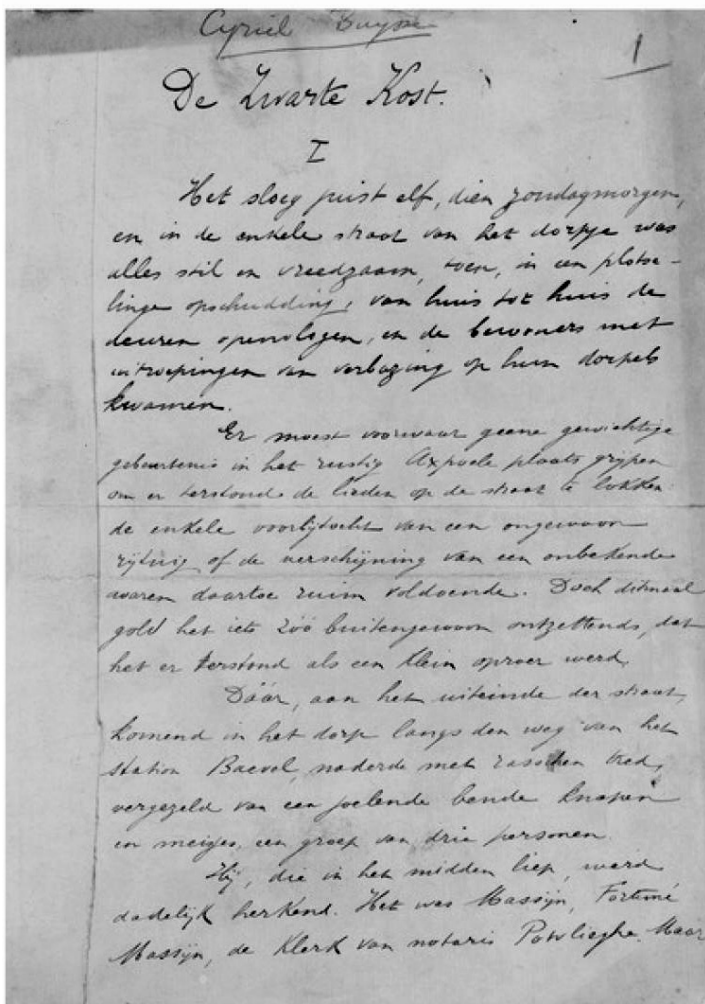 Cyriel Buysse
1
De Zwarte Kost.
I
Het sloeg juist elf, dien zondagmorgen,
en in de enkele straat van het dorpje was
alles stil en vreedzaam, toen, in een plotse-
linge opschudding, van huis tot huis de
deuren openvlogen, en de bewoners met
uitroepingen van verbazing op hun dorpels
kwamen.
Er moest voorwaar geene gewichtige
gebeurtenis in het rustig Axpoele plaats grijpen
om er terstond de lieden op de straat te lokken:
de enkele voorbijtocht van een ongewoon
rijtuig of de verschijning van een onbekende
waren daartoe ruim voldoende. Doch ditmaal
gold het iets zóó buitengewoon ontzettends, dat
het er terstond als een klein oproer werd.
Dáár, aan het uiteinde der straat,
komend in het dorp langs den weg van het
station Baevel, naderde met rasschen tred,
vergezeld van een joelende bende knapen
en meisjes, een groep van drie personen.
Hij, die in het midden liep, werd
dadelijk herkend. Het was Massijn, Fortuné
Massijn, de klerk van notaris Potvlieghe. Maar